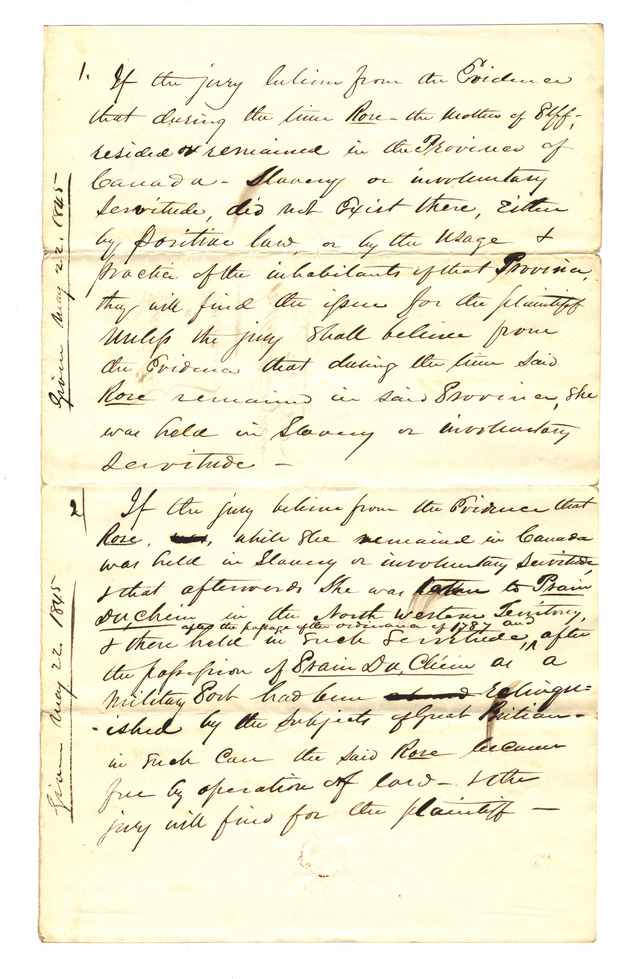 1. If the jury believe from the Evidence
that during the time Rose - the Mother of Plff -
resided or remained in the Province of
Canada - Slavery or involuntary
Servitude, did not Exist there, Either
by positive law, or by the Usage &
practice of the inhabitants of that Province,
they will find the issue for the plaintiff
Unless the jury Shall believe from
the Evidence that during the time said
Rose remained in said Province, She
was held in Slavery or involuntary
Servitude -
Given May 22. 1845
2 If the jury believe from the Evidence that
Rose, while She remained in Canada
was held in Slavery or involuntary Servitude
& that afterwards She was taken to Prairi
Du Chein in the North Western Territory,
after the passage of the ordinance of 1787 and
& there held in Such Servitude, after
the possession of Prairi Du, Chein as a
Military Post had been Extingu=
=ished by the Subjects of Great Britian -
in Such Case the said Rose became
free by operation of law - & the
jury will find for the plaintiff -
Given May 22 1845